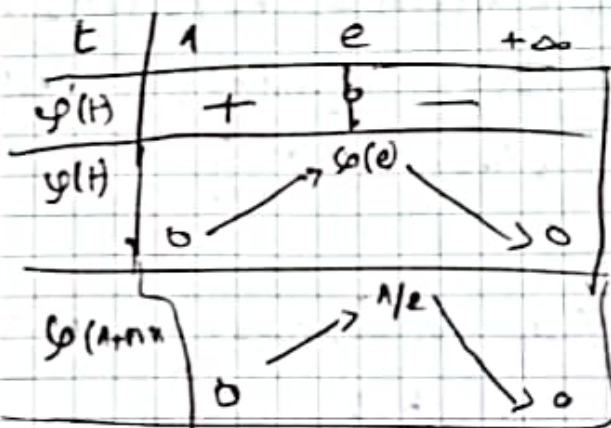 t 1 e +∞
φ'(t) + 0 −
φ(t) 0 φ(e) 0
φ(1+nx 0 1/e 0